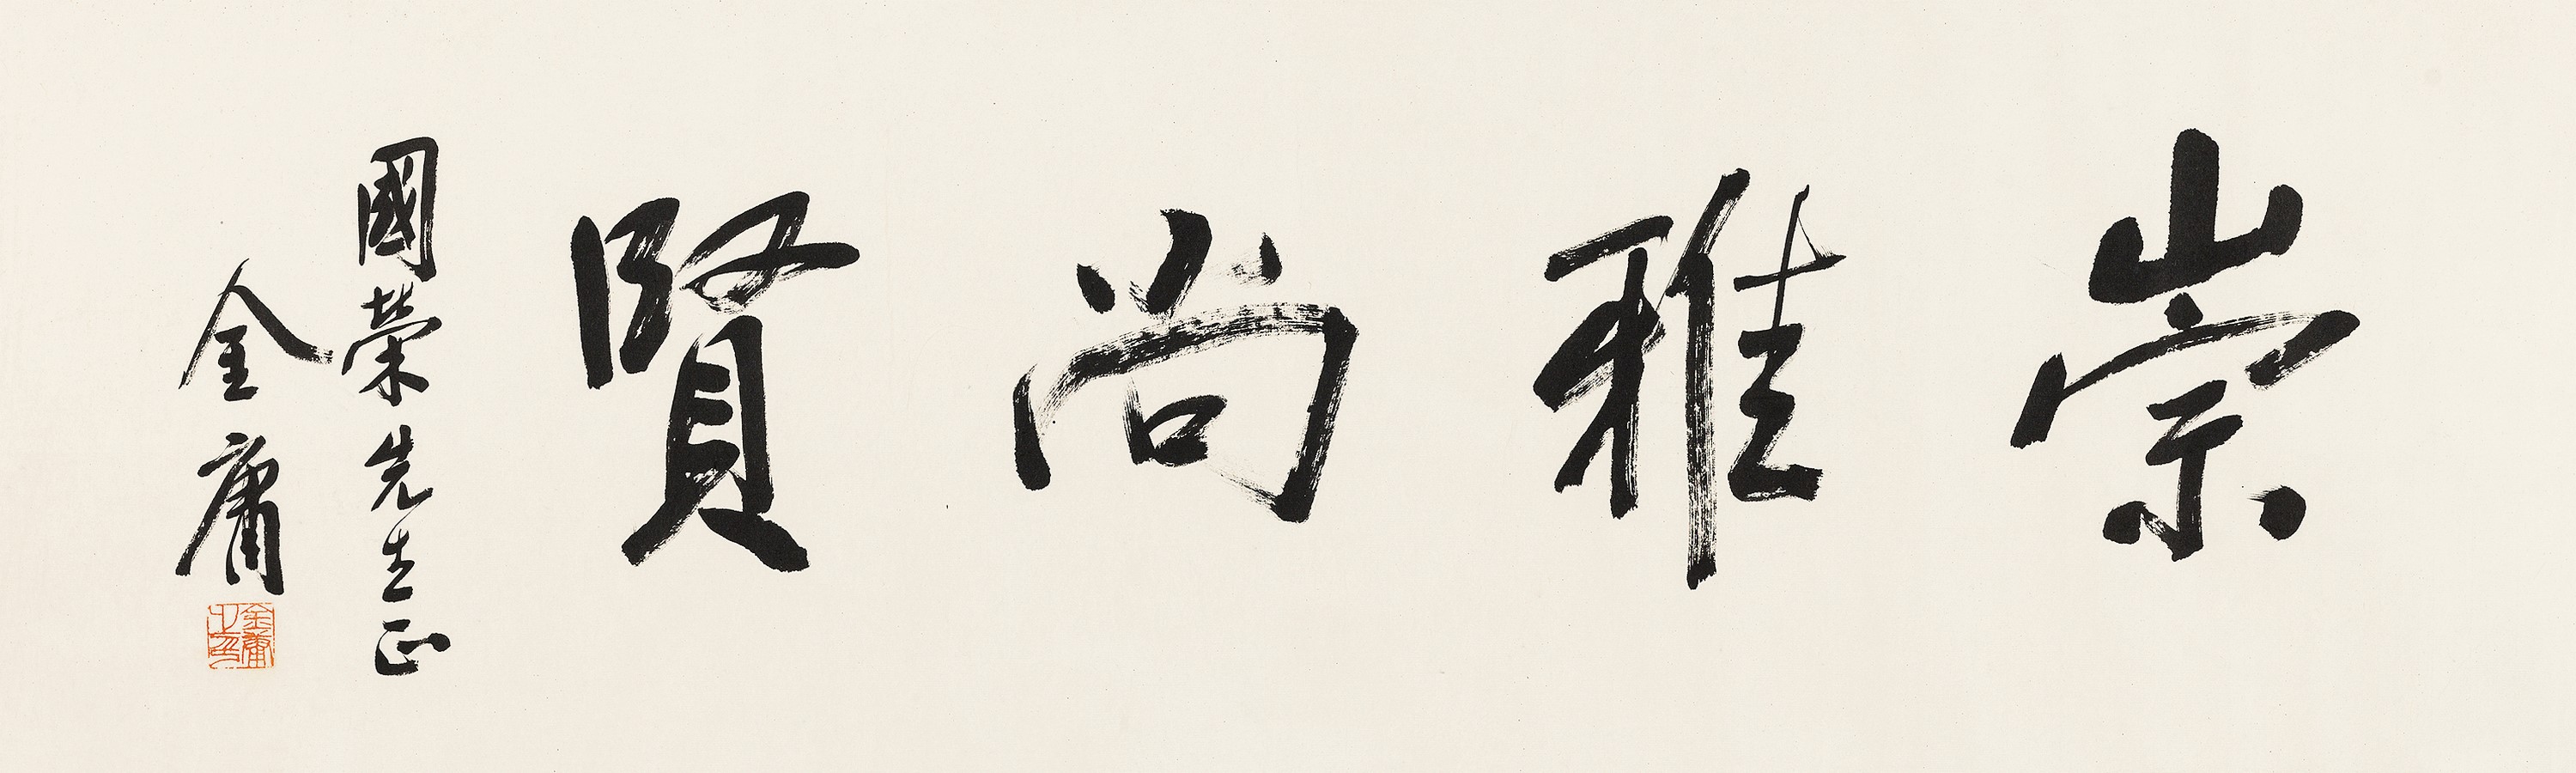 崇雅尚賢
國榮先生正
金庸
金庸之印